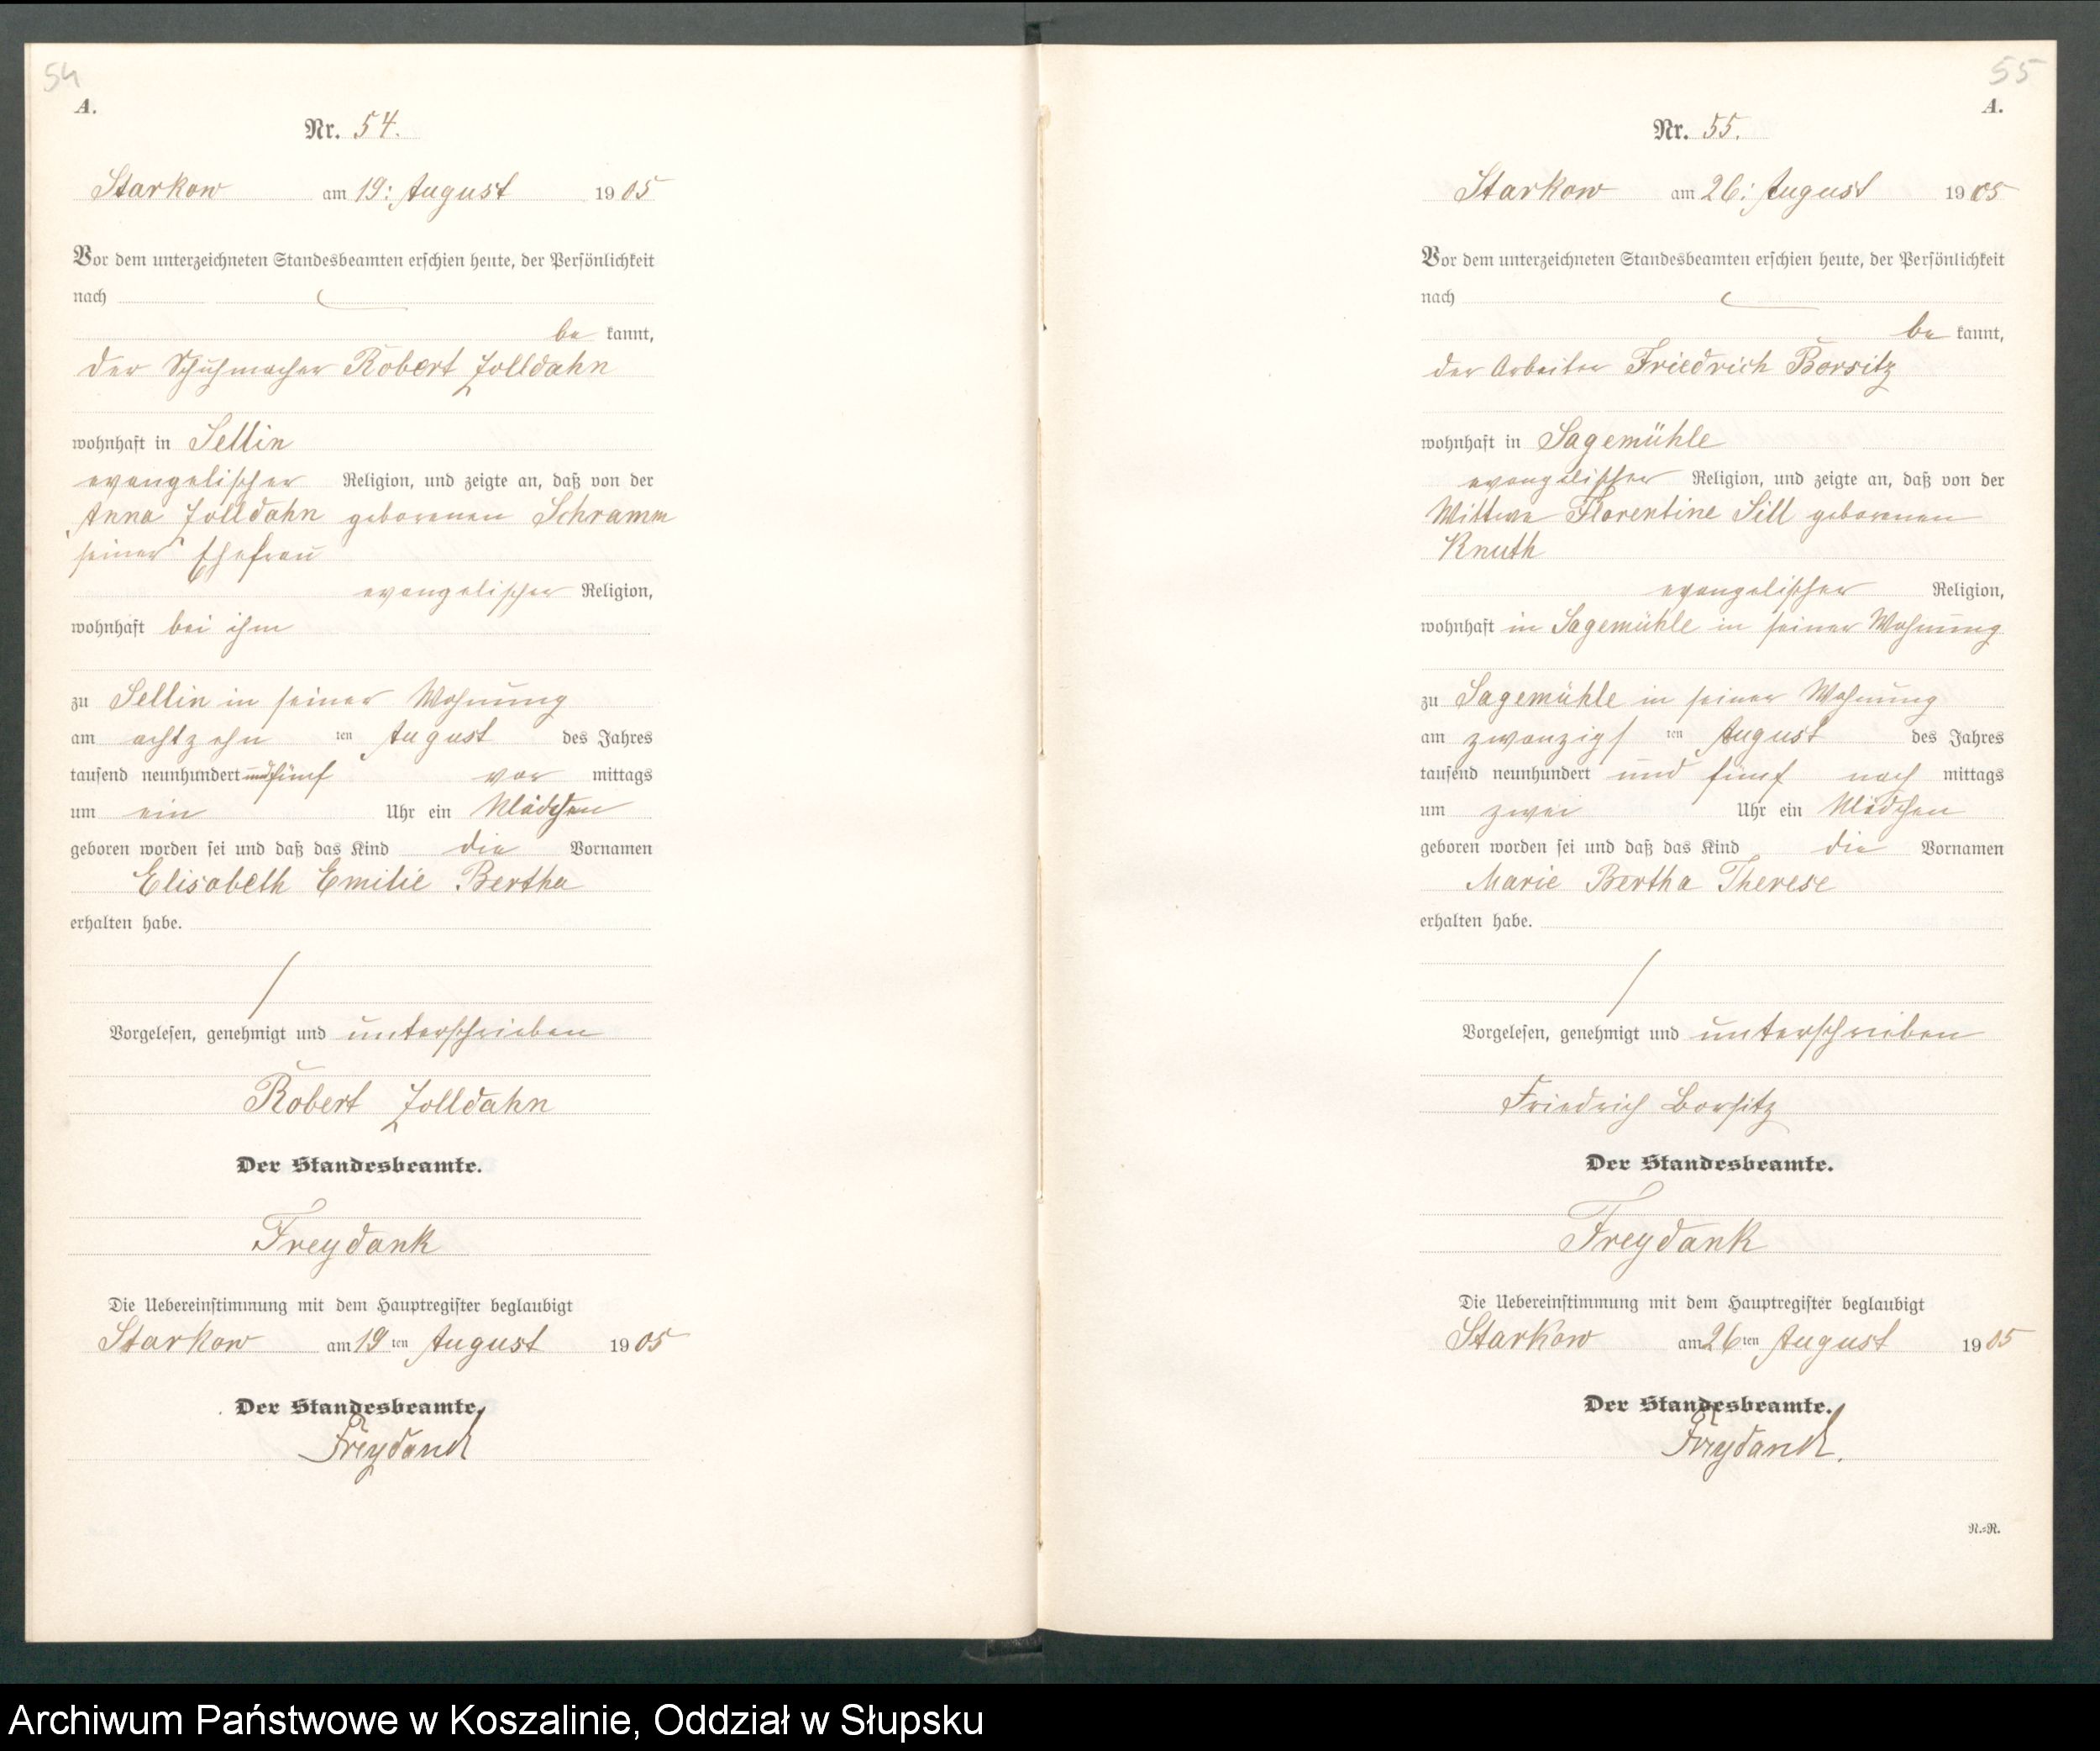 54
A.
Nr. 54.
Starkow am 19: August 1905
Vor dem unterzeichneten Standesbeamten erschien heute, der Persönlichkeit
nach
be kannt,
der Schuhmacher Robert Zolldahn
wohnhaft in Sellin
evangelischer Religion, und zeigte an, daß von der
Anna Zolldahn geborenen Schramm
seiner Ehefrau
evangelischer Religion,
wohnhaft bei ihm
zu Sellin in seiner Wohnung
am achtzehn ten August des Jahres
tausend neunhundert und fünf vor mittags
um ein Uhr ein Mädchen
geboren worden sei und daß das Kind die Vornamen
Elisabeth Emilie Bertha
erhalten habe.
Vorgelesen, genehmigt und unterschrieben
Robert Zolldahn
Der Standesbeamte.
Freydank
Die Uebereinstimmung mit dem Hauptregister beglaubigt
Starkow am 19 ten August 1905
Der Standesbeamte.
Freydank
55
A.
Nr. 55.
Starkow am 26: August 1905
Vor dem unterzeichneten Standesbeamten erschien heute, der Persönlichkeit
nach
be kannt,
der Arbeiter Friedrich Borsitz
wohnhaft in Sagemühle
evangelischer Religion, und zeigte an, daß von der
Wittwe Florentine Sill geborenen
Knuth
evangelischer Religion,
wohnhaft in Sagemühle in seiner Wohnung
zu Sagemühle in seiner Wohnung
am zwanzigs ten August des Jahres
tausend neunhundert und fünf nach mittags
um zwei Uhr ein Mädchen
geboren worden sei und daß das Kind die Vornamen
Marie Bertha Therese
erhalten habe.
Vorgelesen, genehmigt und unterschrieben
Friedrich Borsitz
Der Standesbeamte.
Freydank
Die Uebereinstimmung mit dem Hauptregister beglaubigt
Starkow am 26 ten August 1905
Der Standesbeamte.
Freydank.
N.=R.
Archiwum Państwowe w Koszalinie, Oddział w Słupsku